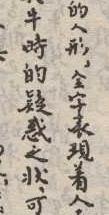 的人形，全字表現着人
牛時的疑惑之狀，可